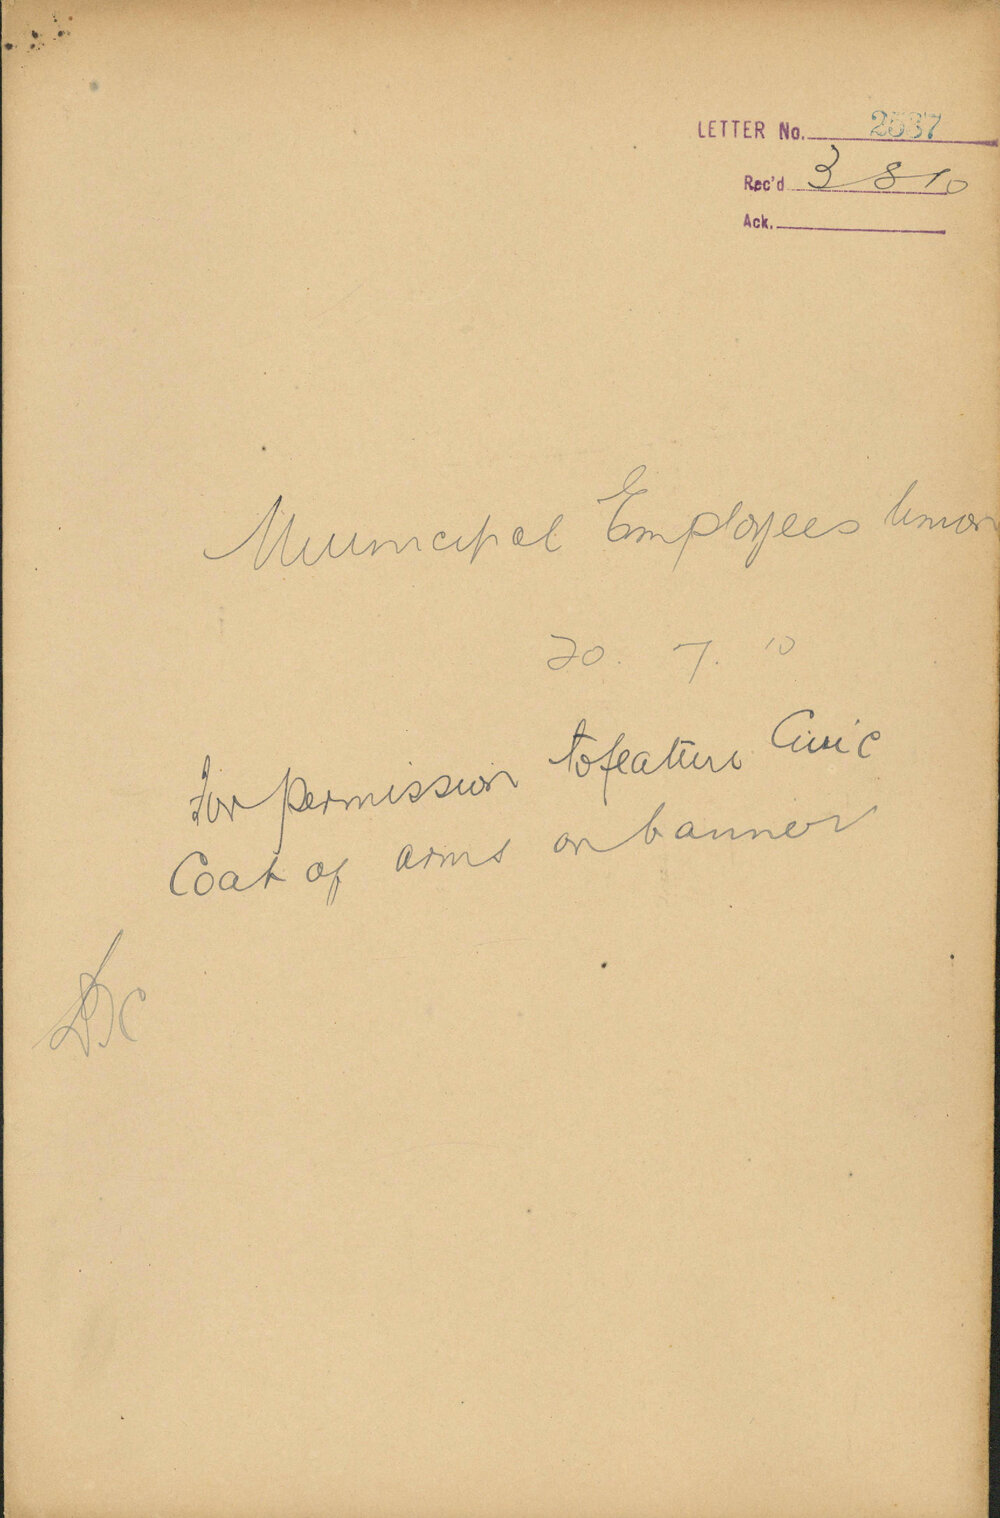 LETTER No. 2537
Rec'd 3 8 10
Ack.
Municipal Employees Union
20. 7. 10
For permission to feature Civic
Coat of arms on banner